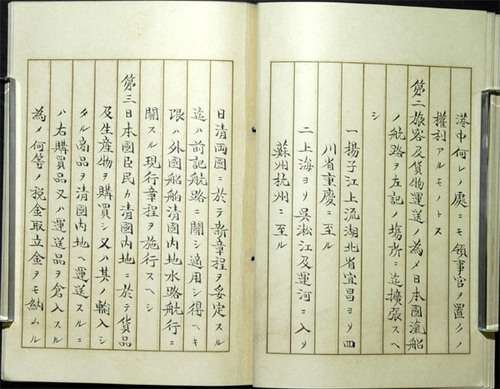 港中何レノ處ニモ領事官ヲ置クノ
權利アルモノトス
第二旅客及貨物運送ノ為メ日本國滊船
ノ航路ヲ左記ノ塲所ニ迄擴張スヘ
シ
一揚子江上流湖北省宜昌ヨリ四
川省重慶ニ至ル
二上海ヨリ吳淞江及運河ニ入リ
蘇州杭州ニ至ル
日淸兩國ニ於テ新章程ヲ妥定スル
迄ハ前記航路ニ關シ適用シ得ヘキ
限ハ外國船舶淸國内地水路航行ニ
關スル現行章程ヲ施行スヘシ
第三日本國臣民カ淸國内地ニ於テ貨品
及生産物ヲ購買シ又ハ其ノ輸入シ
タル商品ヲ淸國内地ヘ運送スルニ
ハ右購買品又ハ運送品ヲ倉入スル
為メ何等ノ税金取立金ヲモ納ムル